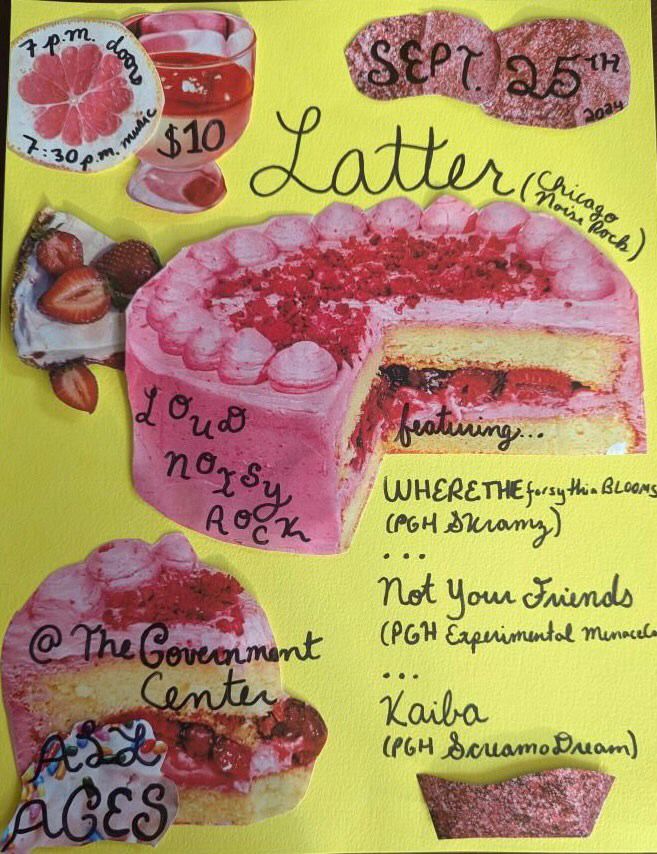 7 p.m. doors
7:30 p.m. music
$10
SEPT. 25TH
2024
Latter (Chicago
Noise Rock)
LOUD
NOISY
ROCK
featuring...
WHERETHEforsythiaBLOOMS
(PGH Skramz)
...
Not Your Friends
(PGH Experimental
...
Kaiba
(PGH ScreamoDream)
@ The Government
Center
ALL
AGES